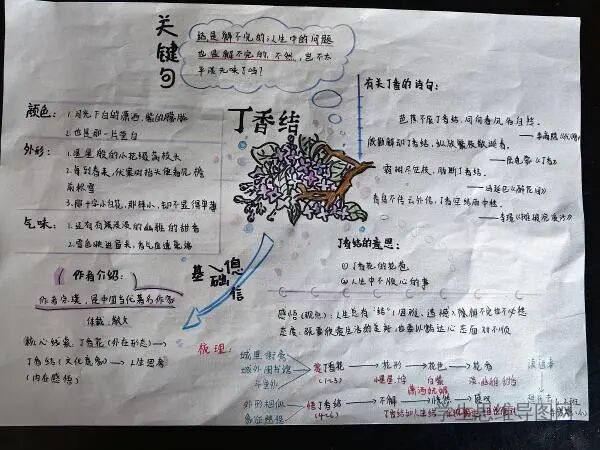 关键句
结是解不完的,人生中的问题
也是解不完的,不然,岂不太
平淡无味了吗?
丁香结
颜色:
1.月光下白的潇洒,紫的朦胧
2.也是那一片莹白
外形:
1.星星般的小花缀满枝头
2.每到春来,伏案时抬头便看见檐
前积雪
3.那十字小白花,那样小,却不显得单薄
气味:
1.还有淡淡的幽雅的甜香
2.雪色映进窗来,香气直透毫端
作者介绍:
作者宗璞,是中国当代著名作家
体裁:散文
丁香花(外在形态)→
丁香结(文化意象)→人生思考
(内在感悟)
基础信息
有关丁香的诗句:
芭蕉不展丁香结,同向春风各自愁。
——李商隐《代赠》
殷勤解却丁香结,纵放繁枝散诞春。
——陆龟蒙《丁香》
霜树尽空枝,肠断丁香结。
——冯延巳《醉花间》
青鸟不传云外信,丁香空结雨中愁。
——李璟《摊破浣溪沙》
丁香结的意思:
①丁香花的花苞
②人生中不顺心的事
感悟(观点):人生总有“结”(困难、遗憾)
梳理:
城里街旁
城外
斗室外
赏丁香花
(1-3)
花形
花色
花香
白紫
潇洒朦胧
外形相似
悟丁香结
(4-6)
不解
学生思维导图